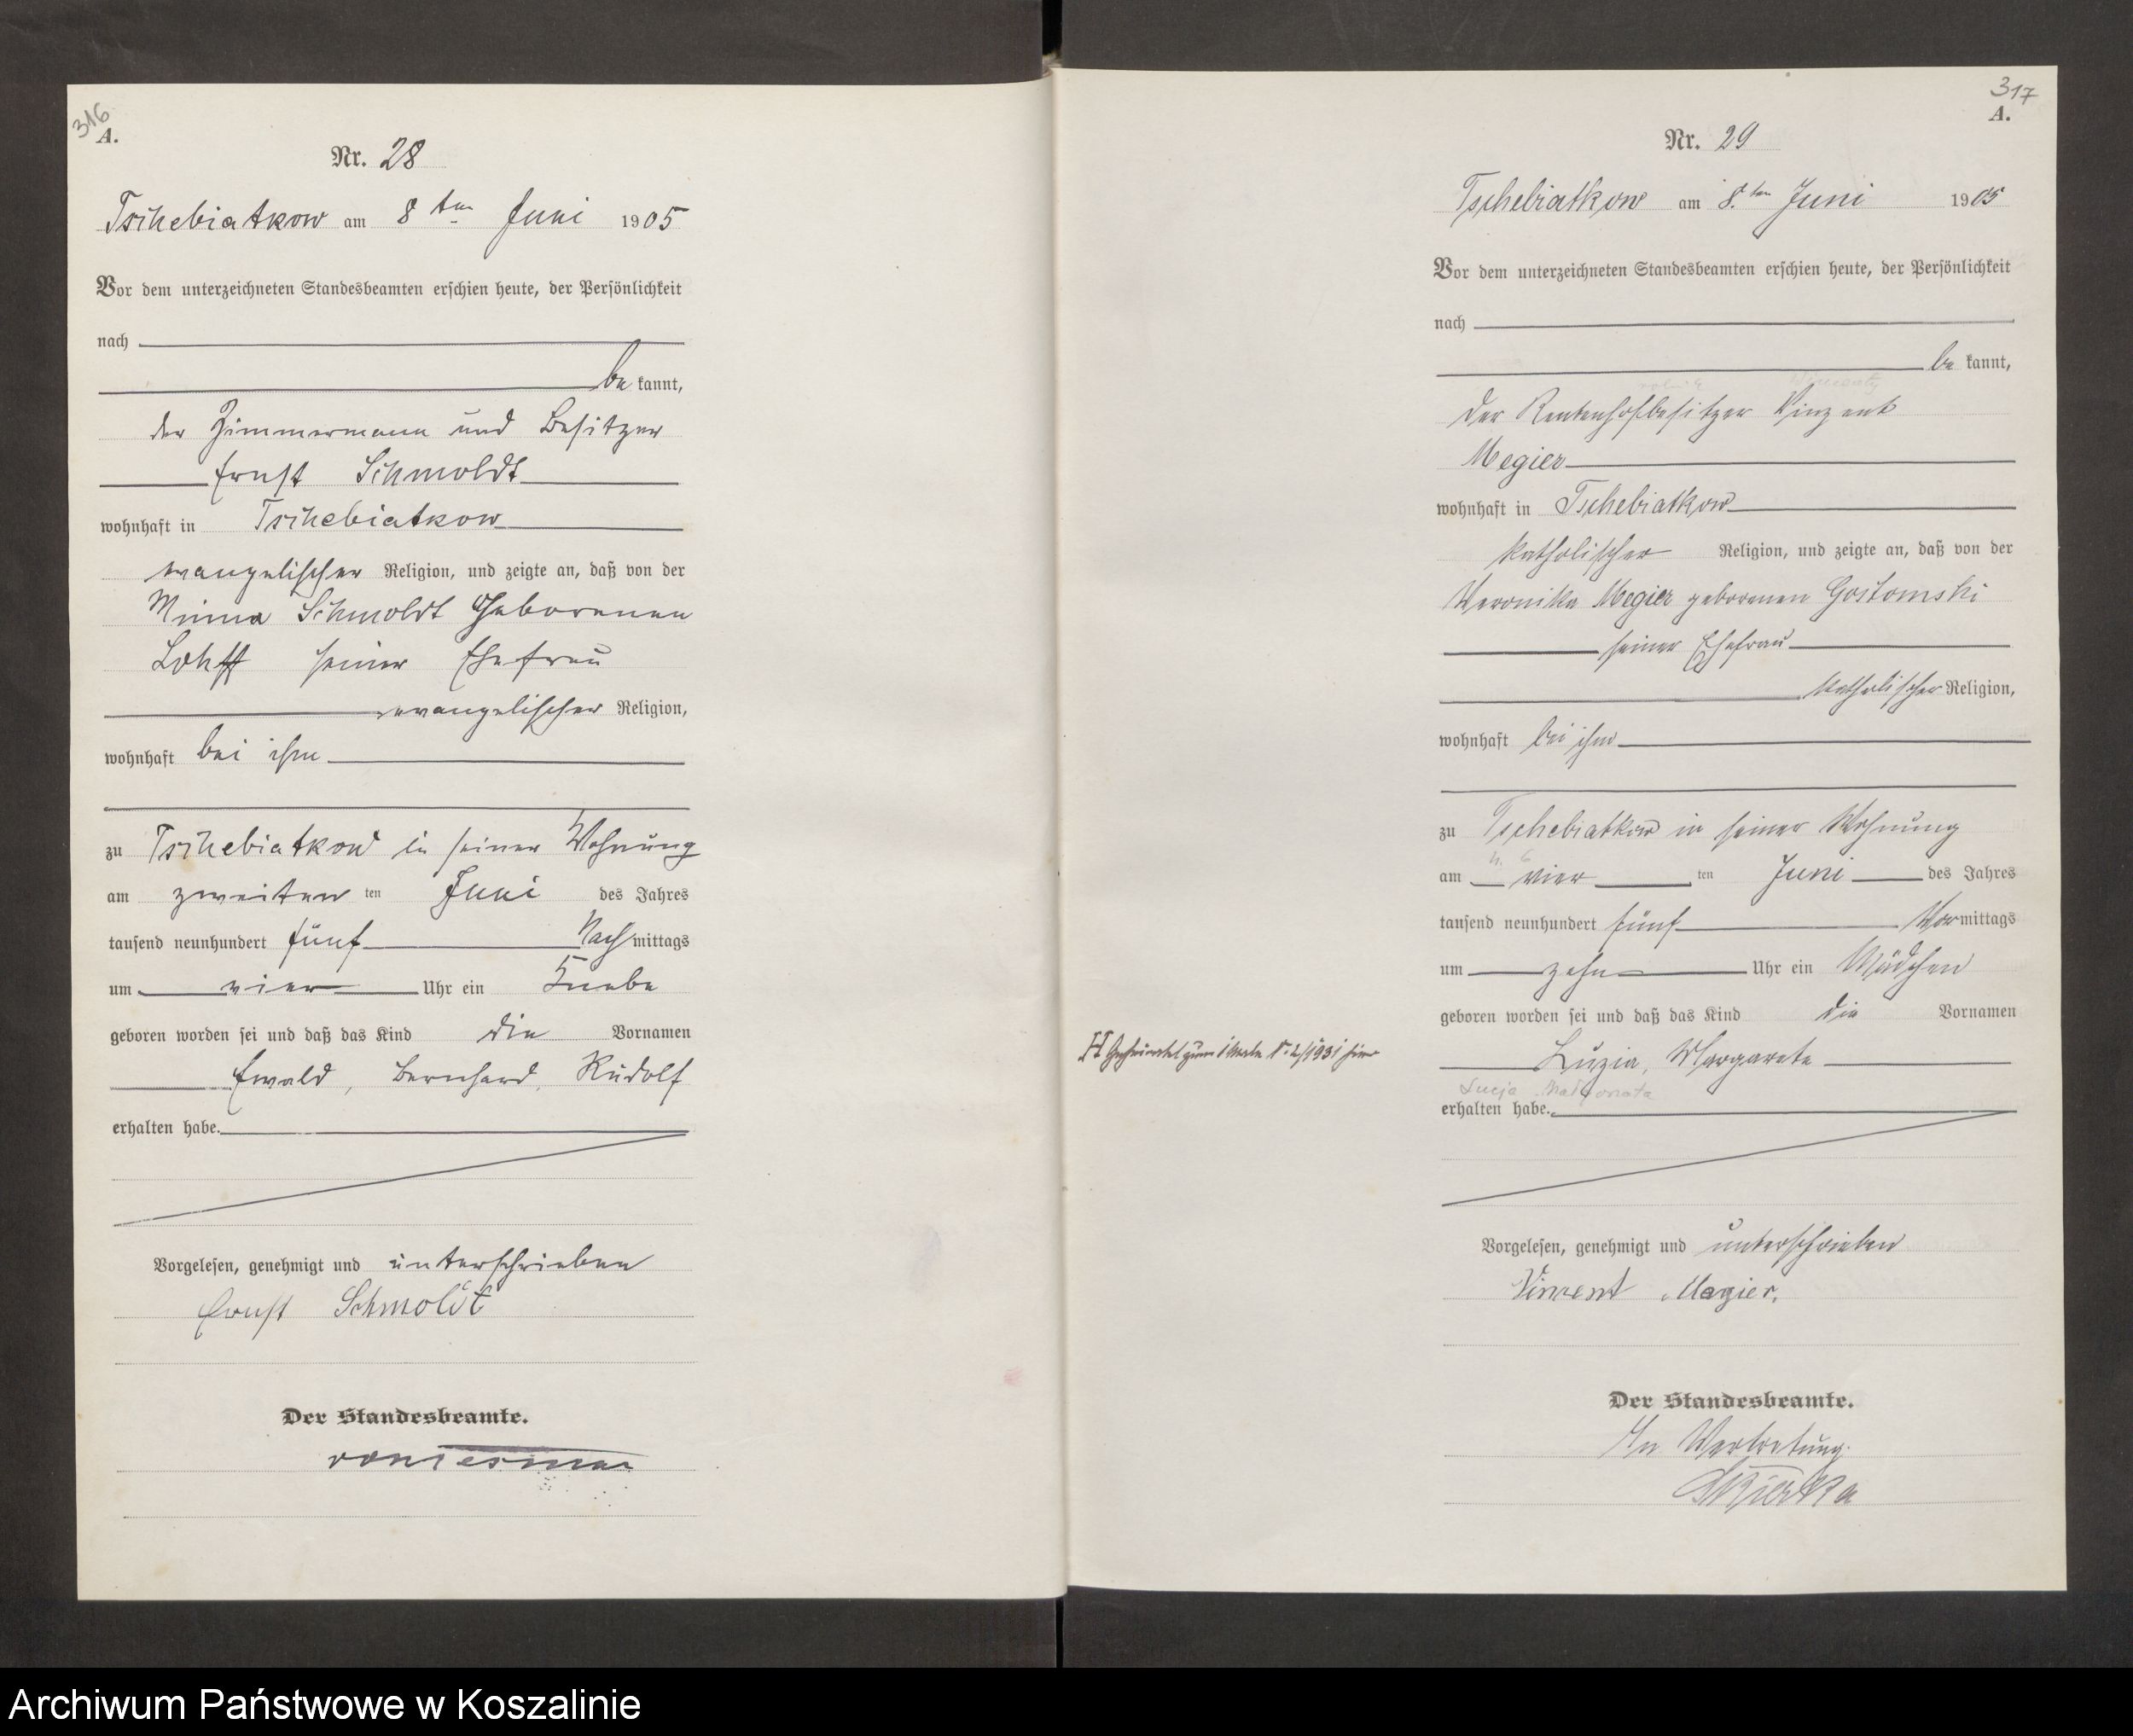 316
A.
Nr. 28
Tschebiatkow am 8ten Juni 1905
Vor dem unterzeichneten Standesbeamten erschien heute, der Persönlichkeit
nach
be kannt,
der Zimmermann und Besitzer
Ernst Schmoldt
wohnhaft in Tschebiatkow
evangelischer Religion, und zeigte an, daß von der
Minna Schmoldt geborenen
Lohff seiner Ehefrau
evangelischer Religion,
wohnhaft bei ihm
zu Tschebiatkow in seiner Wohnung
am zweiten ten Juni des Jahres
tausend neunhundert fünf Nach mittags
um vier Uhr ein Knabe
geboren worden sei und daß das Kind die Vornamen
Ewald, Bernhard, Rudolf
erhalten habe.
Vorgelesen, genehmigt und unterschrieben
Ernst Schmoldt
Der Standesbeamte.
317
A.
Nr. 29
Tschebiatkow am 8.ten Juni 1905
Vor dem unterzeichneten Standesbeamten erschien heute, der Persönlichkeit
nach
be kannt,
der Rentenhofbesitzer Vinzent
Megier
wohnhaft in Tschebiatkow
katholischer Religion, und zeigte an, daß von der
Veronika Megier geborenen Gostomski
seiner Ehefrau
katholischer Religion,
wohnhaft bei ihm
zu Tschebiatkow in seiner Wohnung
am vier ten Juni des Jahres
tausend neunhundert fünf Vor mittags
um zehn Uhr ein Mädchen
geboren worden sei und daß das Kind die Vornamen
Luzia, Margarete
Lucja Małgorzata
erhalten habe.
Vorgelesen, genehmigt und unterschrieben
Vincent Magier.
Der Standesbeamte.
In Vertretung.
Archiwum Państwowe w Koszalinie